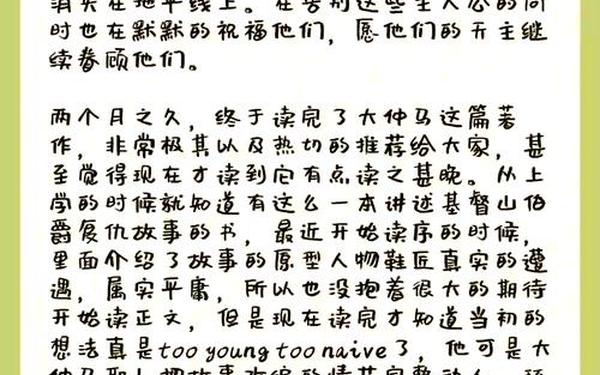 消失在地平线上。在告别这些主人公的同
时也在默默的祝福他们，愿他们的天主继
续眷顾他们。
两个月之久，终于读完了大仲马这篇著
作，非常极其以及热切的推荐给大家，甚
至觉得现在才读到它有点读之甚晚。从上
学的时候就知道有这么一本讲述基督山伯
爵复仇故事的书，最近开始读序的时候，
里面介绍了故事的原型人物鞋匠真实的遭
遇，属实平庸，所以也没抱着很大的期待
开始读正文，但是现在读完才知道当初的
想法真是too young too naive了，他可是大